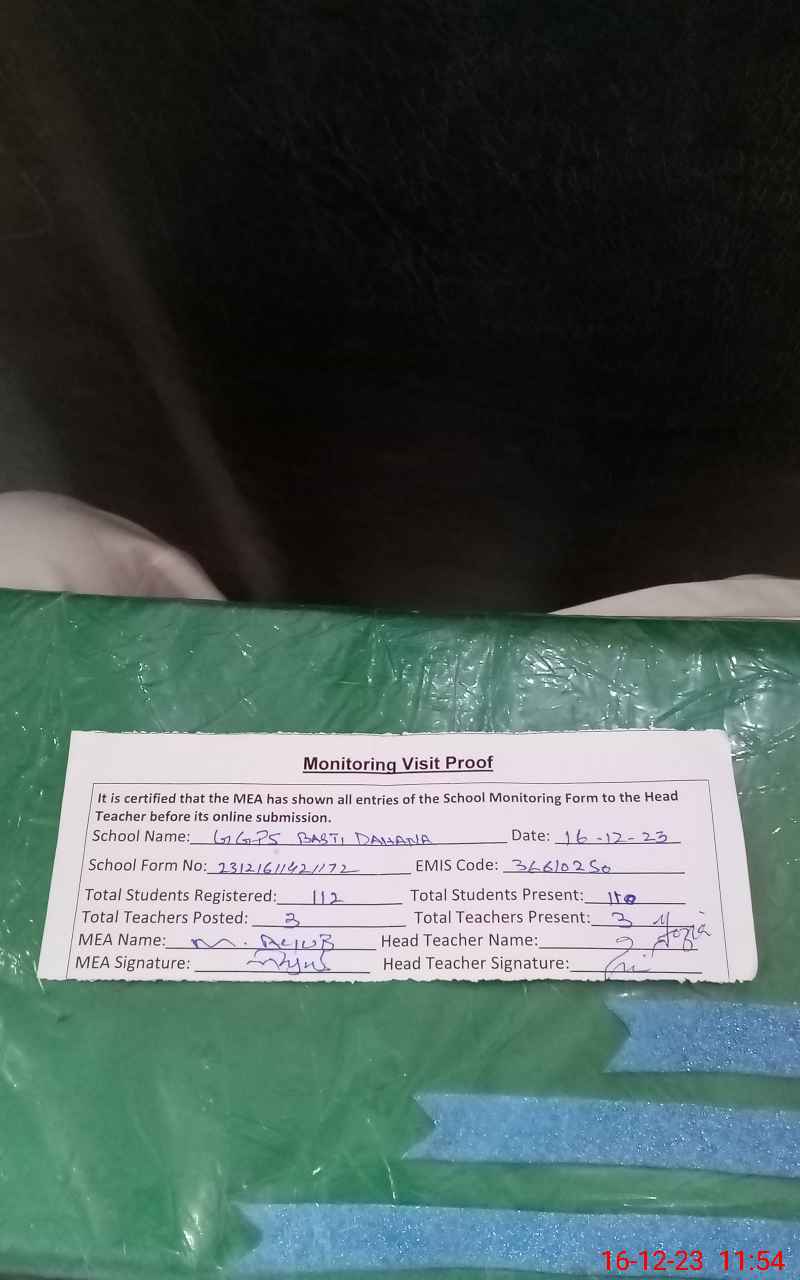 Monitoring Visit Proof
It is certified that the MEA has shown all entries of the School Monitoring Form to the Head
Teacher before its online submission.
School Name: GGPS BASTI DAHANA Date: 16-12-23
School Form No: 23121611421172 EMIS Code: 36610250
Total Students Registered: 112 Total Students Present: 110
Total Teachers Posted: 3 Total Teachers Present: 3
MEA Name: M. AYUB Head Teacher Name:
MEA Signature: Head Teacher Signature:
16-12-23 11:54